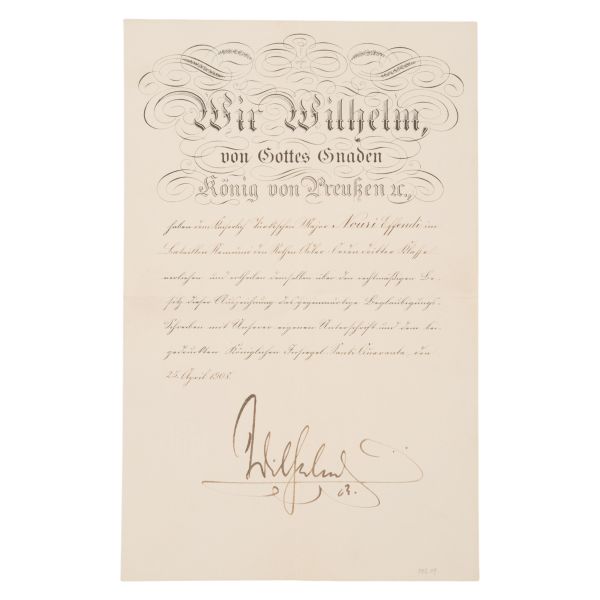 Wir Wilhelm,
von Gottes Gnaden
König von Preußen ꝛc.,
haben dem Kaiserlich Türkischen Major Nouri Effendi im
Bataillon den Rothen Adler-Orden dritter Klasse
verliehen und ertheilen demselben über den rechtmäßigen Be-
sitz dieser Auszeichnung das gegenwärtige Beglaubigungs-
Schreiben mit Unserer eigenen Unterschrift und dem bei-
gedruckten Königlichen Insiegel. Santi Quaranta, den
25. April 1905.
Wilhelm